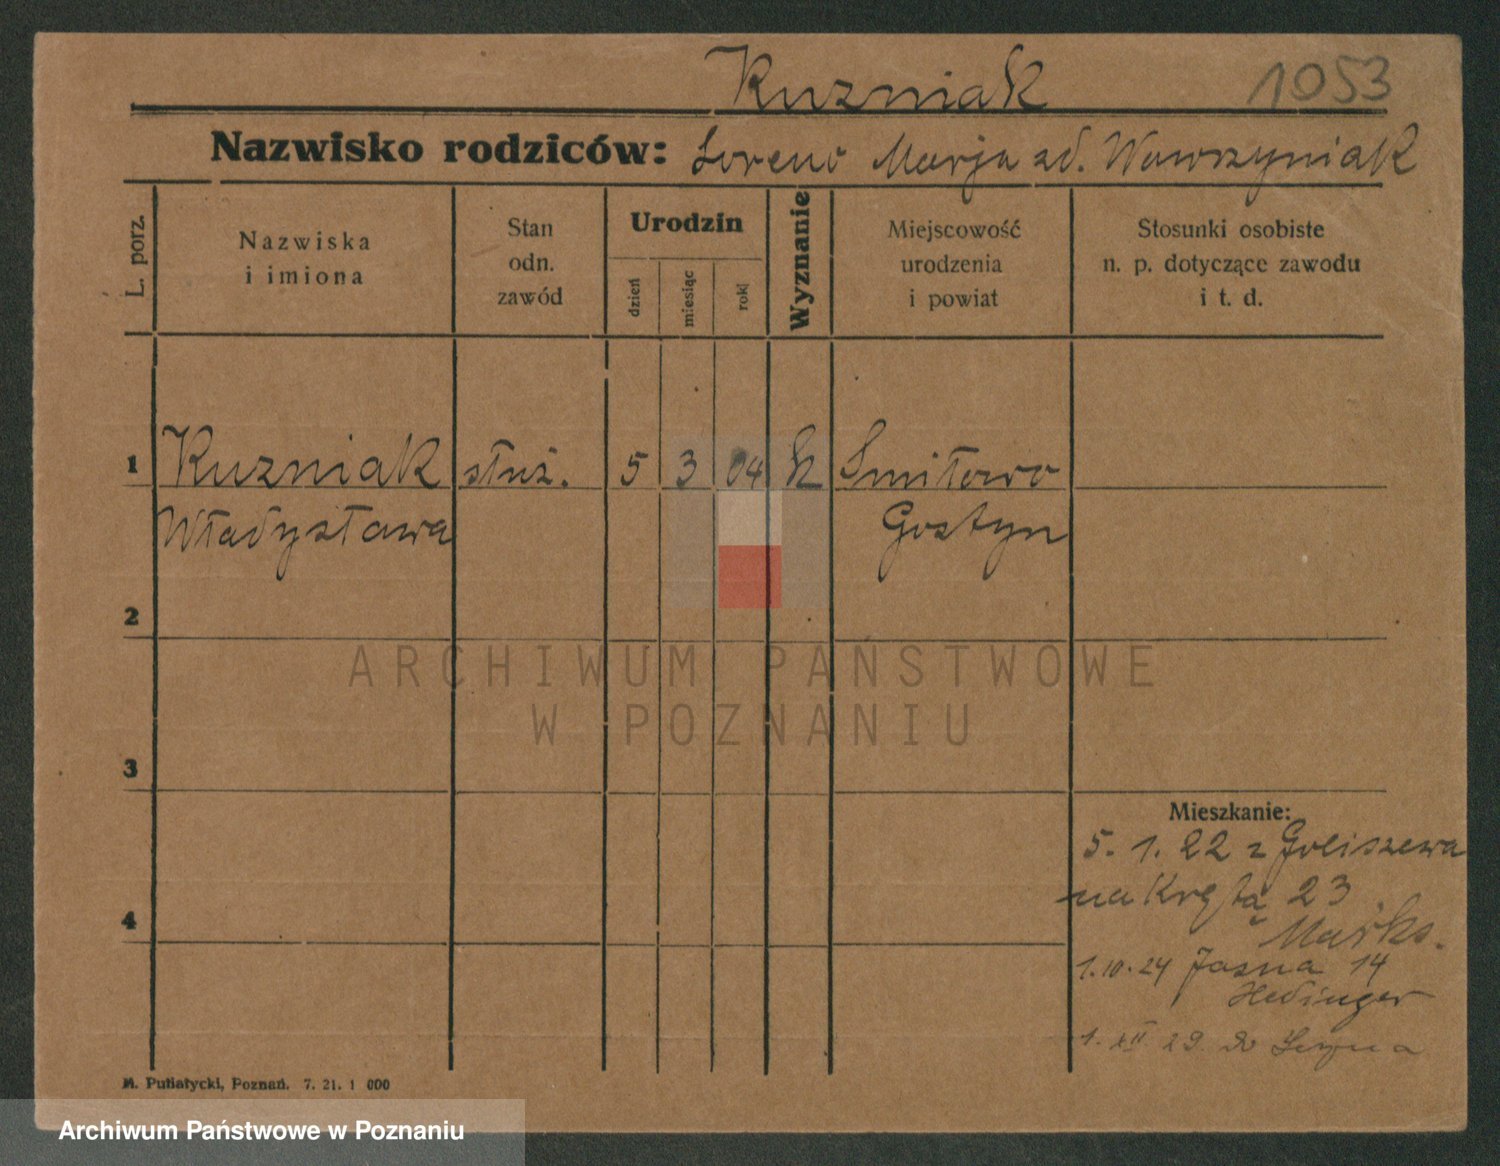 Kuzniak 1053
Nazwisko rodziców: Loreno Marja zd. Wawrzyniak
L. porz.
Nazwiska
i imiona
Stan
odn.
zawód
Urodzin
dzień
miesiąc
rok
Wyznanie
Miejscowość
urodzenia
i powiat
Stosunki osobiste
n. p. dotyczące zawodu
i t. d.
1 Kuzniak służ. 5 3 04 k Smiłowo
Władysława Gostyn
2
ARCHIWUM PAŃSTWOWE
W POZNANIU
3
Mieszkanie:
5. 1. 22 z Goliszewa
na Krętą 23
4
Marks.
1.10.24 Jasna 14
Hedinger
1. XII 29. do
M. Putiatycki, Poznań. 7. 21. 1 000
Archiwum Państwowe w Poznaniu